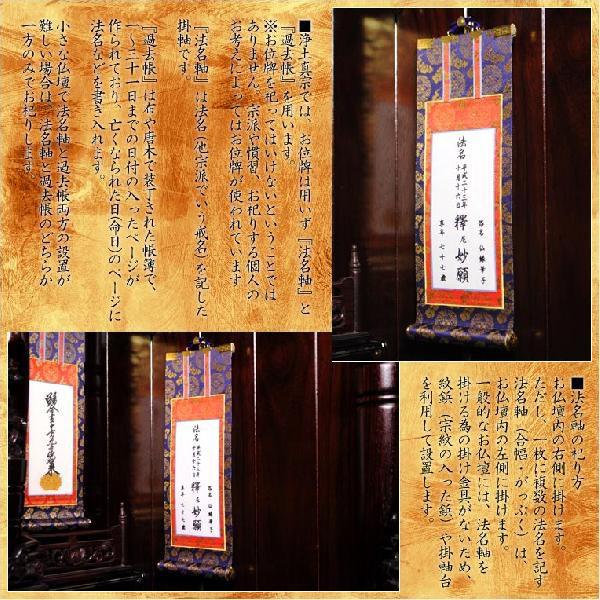 ■浄土真宗では、お位牌は用いず『法名軸』と
『過去帳』を用います。
※お位牌を祀ってはいけないということでは
ありません。宗派や慣習、お祀りする個人の
お考えによってはお位牌が使われています
『法名軸』は法名(他宗派でいう戒名)を記した
掛軸です。
『過去帳』は布や唐木で装丁された帳簿で、
一~三十一日までの日付の入ったページが
作られており、亡くなられた日(命日)のページに
法名などを書き入れます。
小さな仏壇で法名軸と過去帳両方の設置が
難しい場合は、法名軸と過去帳のどちらか
一方のみでお祀りします。
法名
平成二十三年
十月十六日
釋尼妙願
俗名 仏縁華子
享年 七十七歳
■法名軸の祀り方
お仏壇内の右側に掛けます。
ただし、一枚に複数の法名を記す
法名軸(合幅・がっぷく)は、
お仏壇内の左側に掛けます。
一般的なお仏壇には、法名軸を
掛ける為の掛け金具がないため、
紋鋲(宗紋の入った鋲)や掛軸台
を利用して設置します。
法名
平成二十三年
十月十六日
釋尼妙願
俗名 仏縁華子
享年 七十七歳